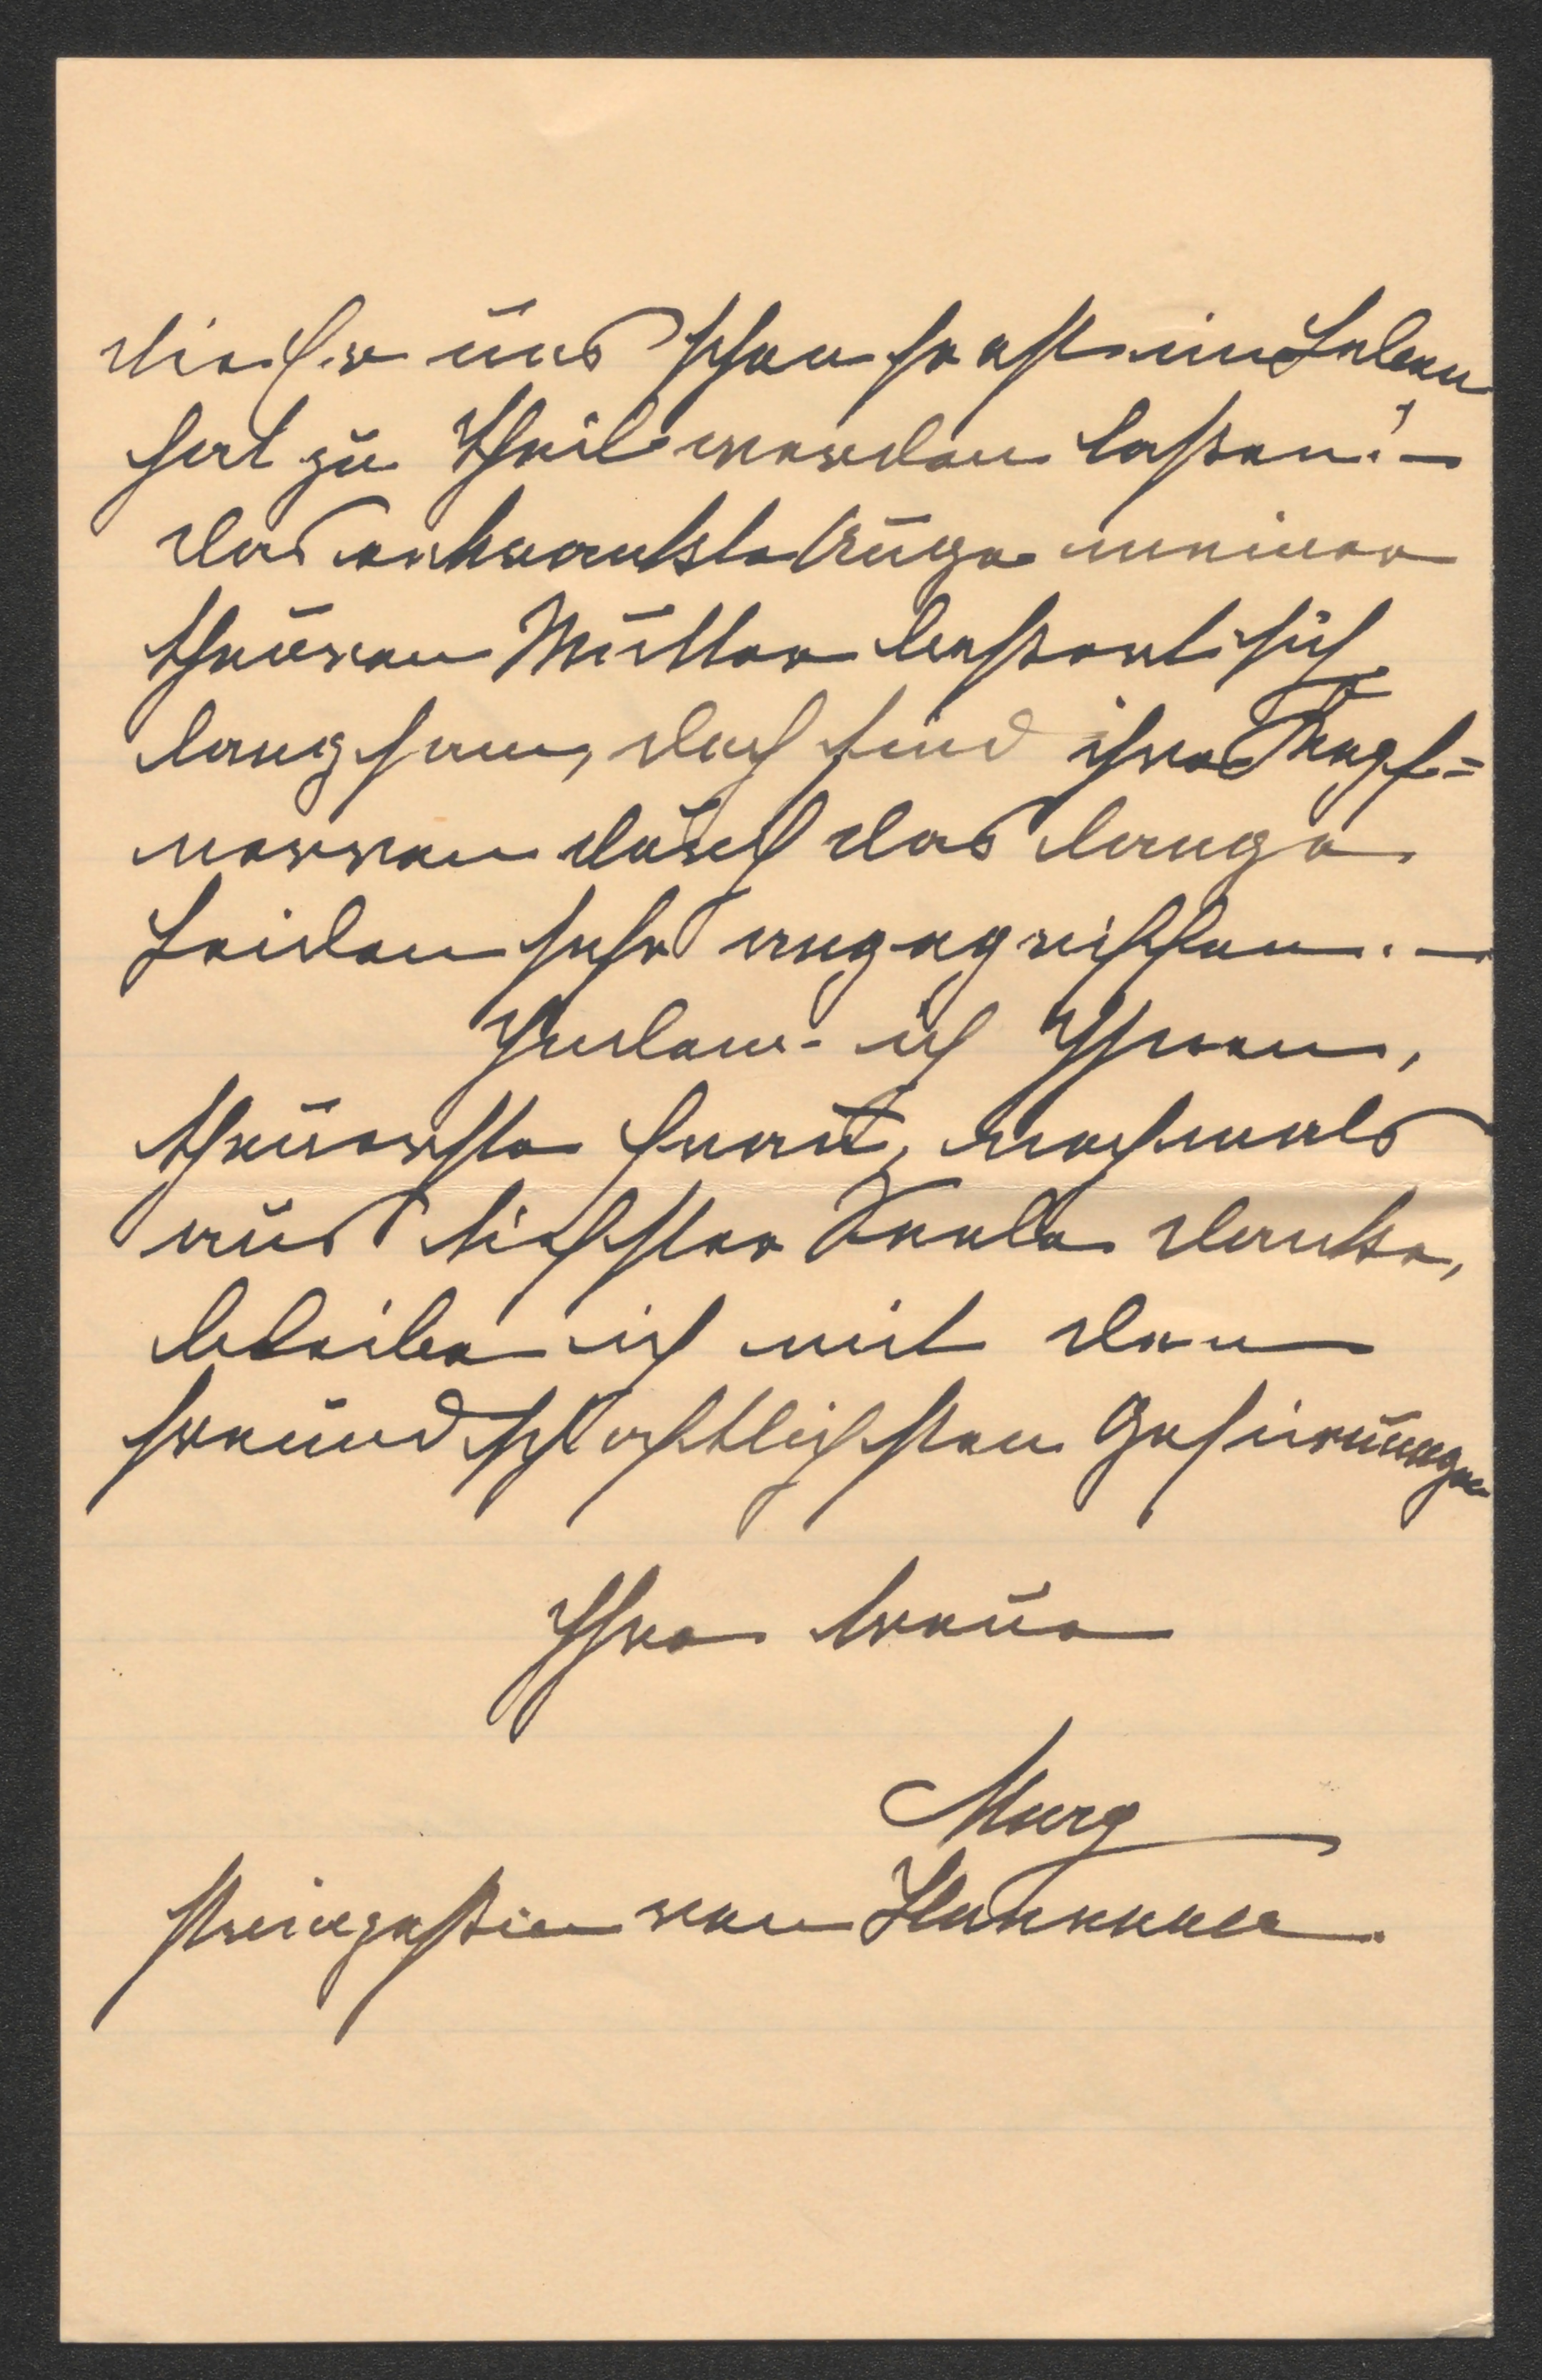 die Er uns schon so oft im Leben
hat zu Theil werden laßen! —
Das erkrankte Auge meiner
theueren Mutter beßert sich
langsam, doch sind ihre Kopf=
nerven durch das lange
Leiden sehr angegriffen. —
Indem ich Ihnen,
theuerste Frau, nochmals
aus tiefster Seele danke,
bleibe ich mit den
freundschaftlichsten Gesinnungen
Ihre treue
Mary
Prinzeßin von Hannover.